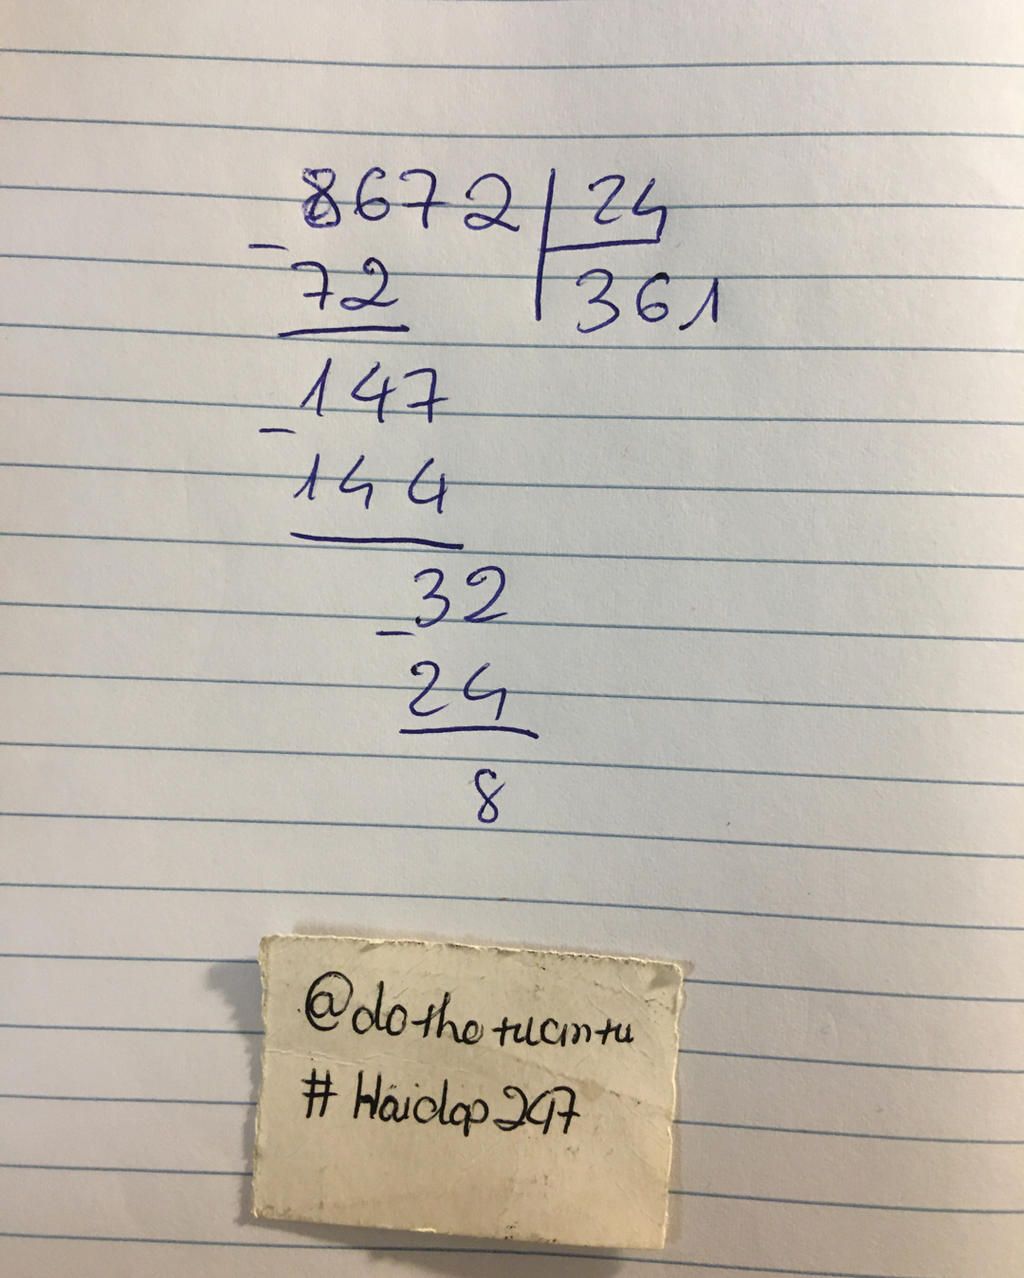 8672 24
- 72 361
147
- 144
32
- 24
8
@dothetuantu
#Hoidap247